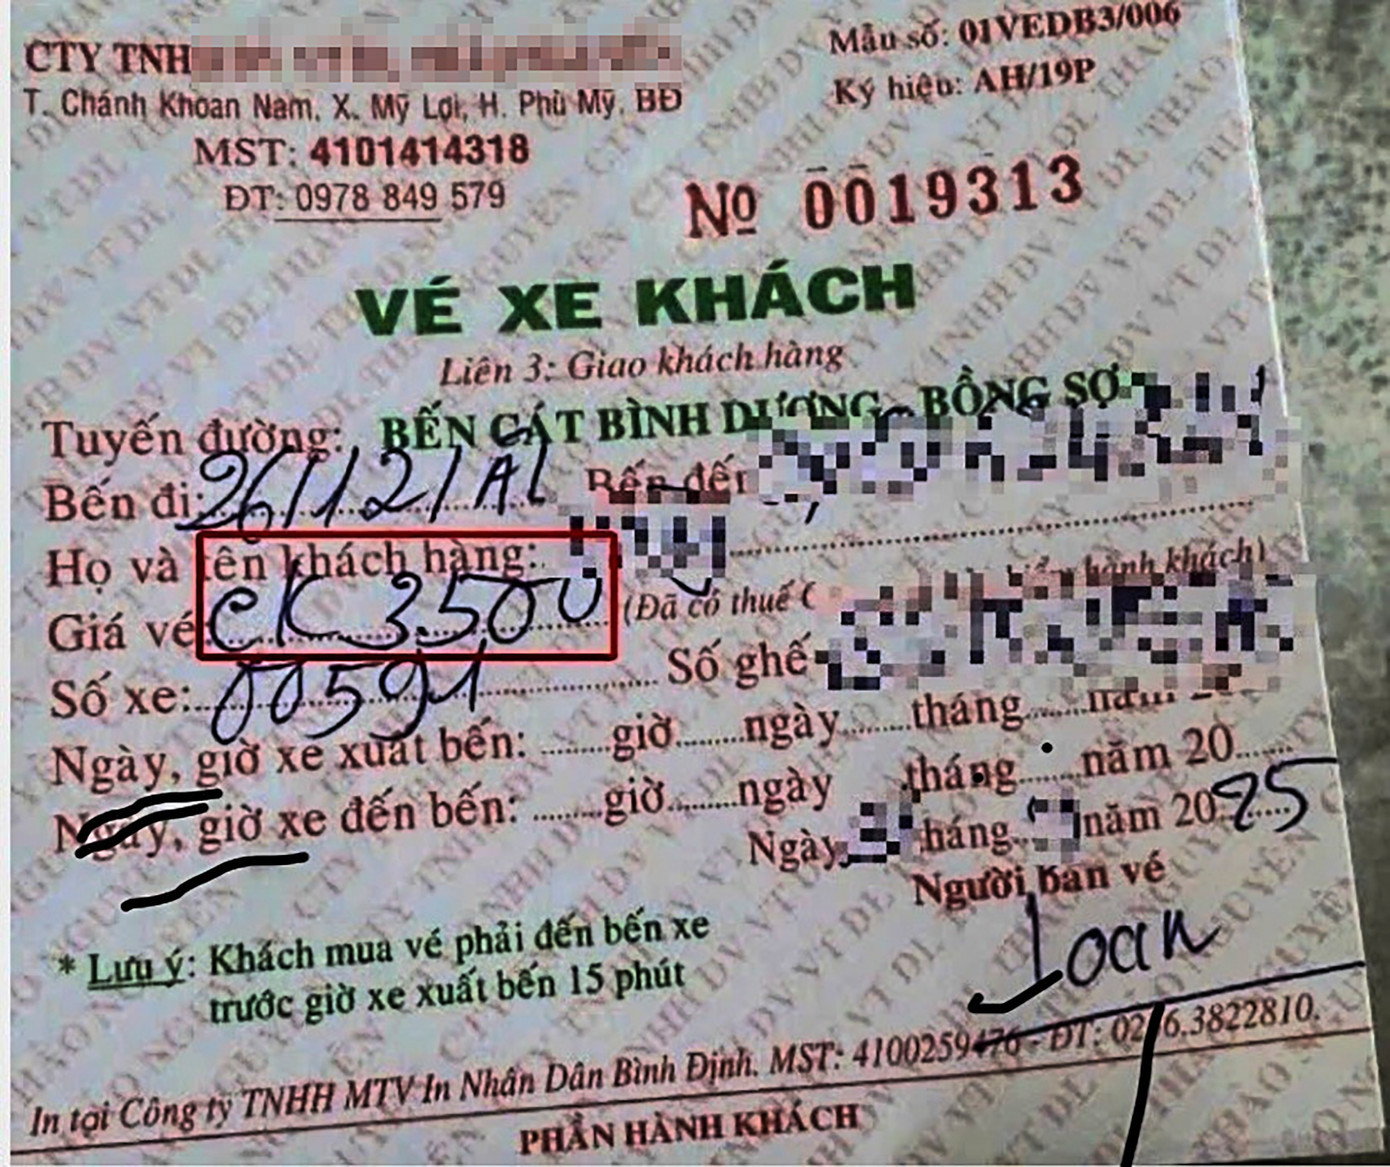 CTY TNH
T. Chánh Khoan Nam, X. Mỹ Lợi, H. Phù Mỹ, BĐ
MST: 4101414318
ĐT: 0978 849 579
Mẫu số: 01VEDB3/006
Ký hiệu: AH/19P
Nº 0019313
VÉ XE KHÁCH
Liên 3: Giao khách hàng
Tuyến đường: BẾN CÁT BÌNH DƯƠNG - BỒNG SƠ
Bến đi: 26/12/AL Bến đến
Họ và tên khách hàng:
Giá vé CK 3500 (Đã có thuế hành khách)
Số xe: 00591 Số ghế
Ngày, giờ xe xuất bến: ........giờ........ngày........tháng........năm 2
Ngày, giờ xe đến bến: ........giờ........ngày tháng........năm 20......
Ngày 3 tháng năm 2025
Người bán vé
Loan
* Lưu ý: Khách mua vé phải đến bến xe
trước giờ xe xuất bến 15 phút
In tại Công ty TNHH MTV In Nhân Dân Bình Định. MST: 4100259476 - ĐT: 02 6.3822810.
PHẦN HÀNH KHÁCH